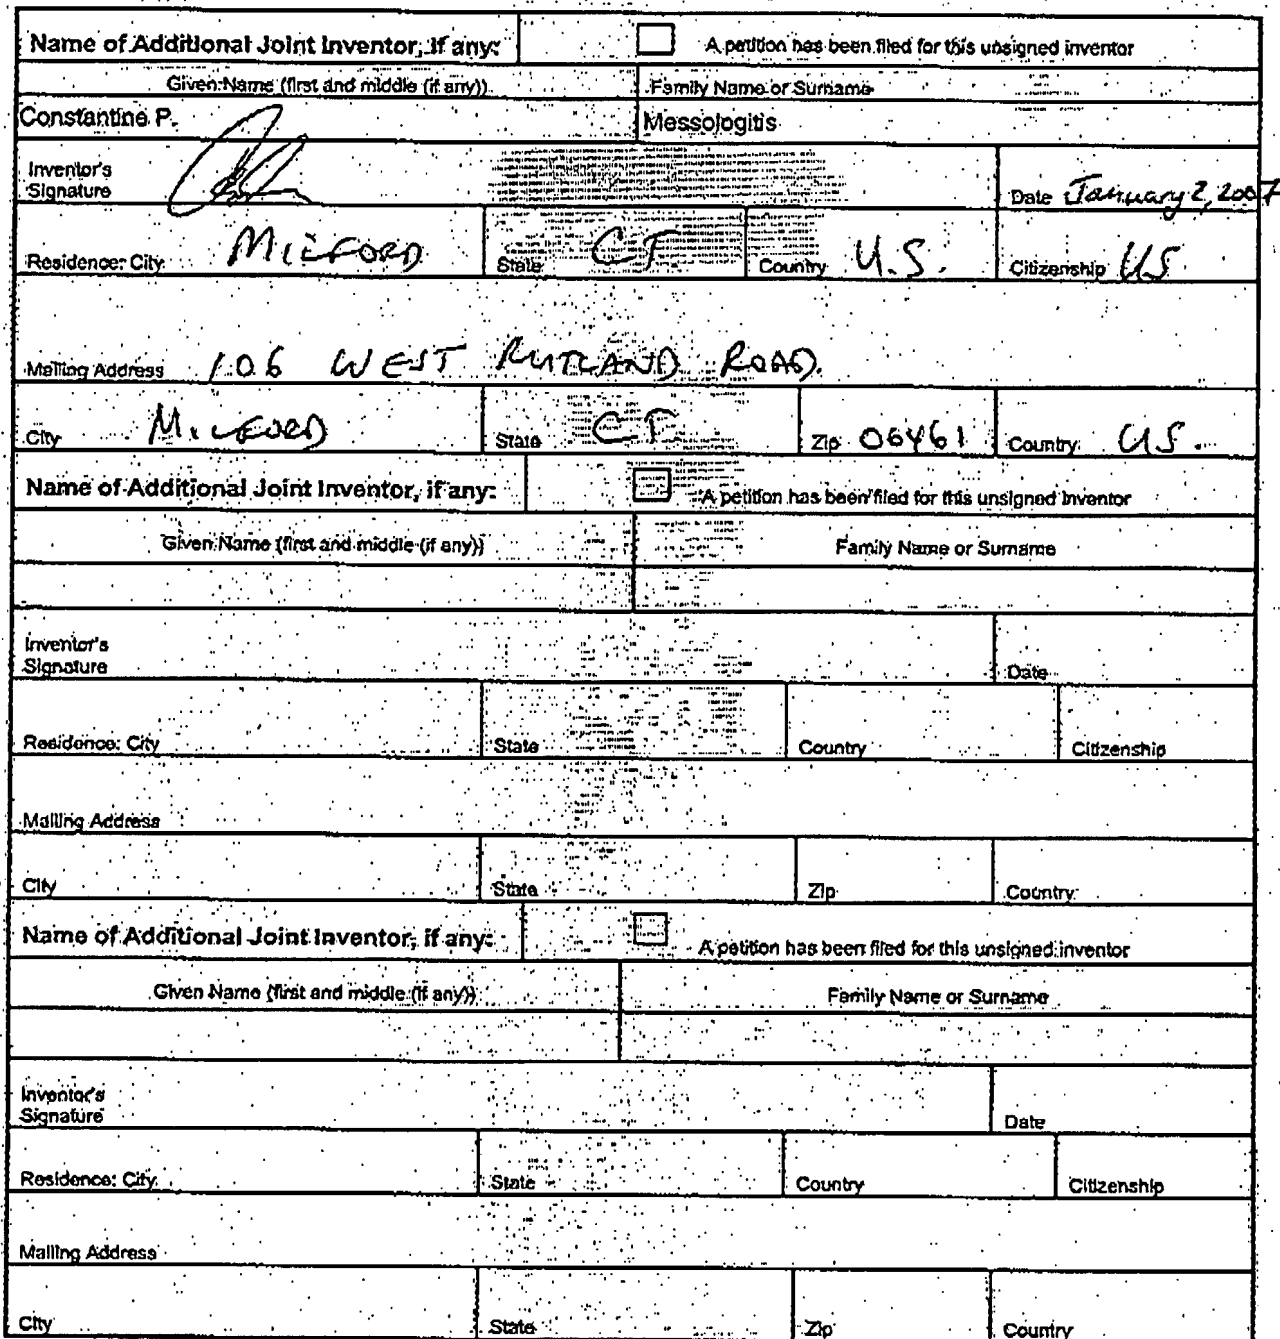 Name of Additional Joint Inventor, if any: A petition has been filed for this unsigned inventor
Given Name (first and middle (if any)) Family Name or Surname
Constantine P. Messologitis
Inventor's
Signature Date January 2, 2007
Residence: City MILFORD State CT Country U.S. Citizenship US
Mailing Address 106 WEST RUTLAND ROAD.
City MILFORD State CT Zip 06461 Country US.
Name of Additional Joint Inventor, if any: A petition has been filed for this unsigned inventor
Given Name (first and middle (if any)) Family Name or Surname
Inventor's
Signature Date
Residence: City State Country Citizenship
Mailing Address
City State Zip Country
Name of Additional Joint Inventor, if any: A petition has been filed for this unsigned inventor
Given Name (first and middle (if any)) Family Name or Surname
Inventor's
Signature Date
Residence: City State Country Citizenship
Mailing Address
City State Zip Country